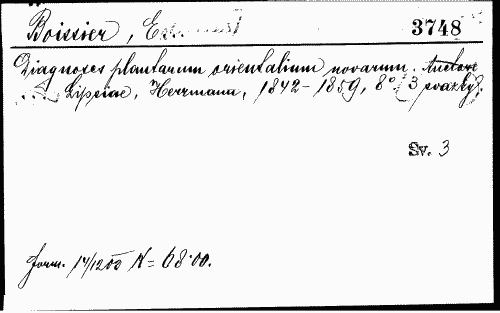 Boissier, 3748
Diagnoses plantarum orientalium novarum. Auctore
Lipsiae, Herrmann, 1842-1859, 8° (3 svazky).
Sv. 3
form. 17/12 00 K= 68·00.